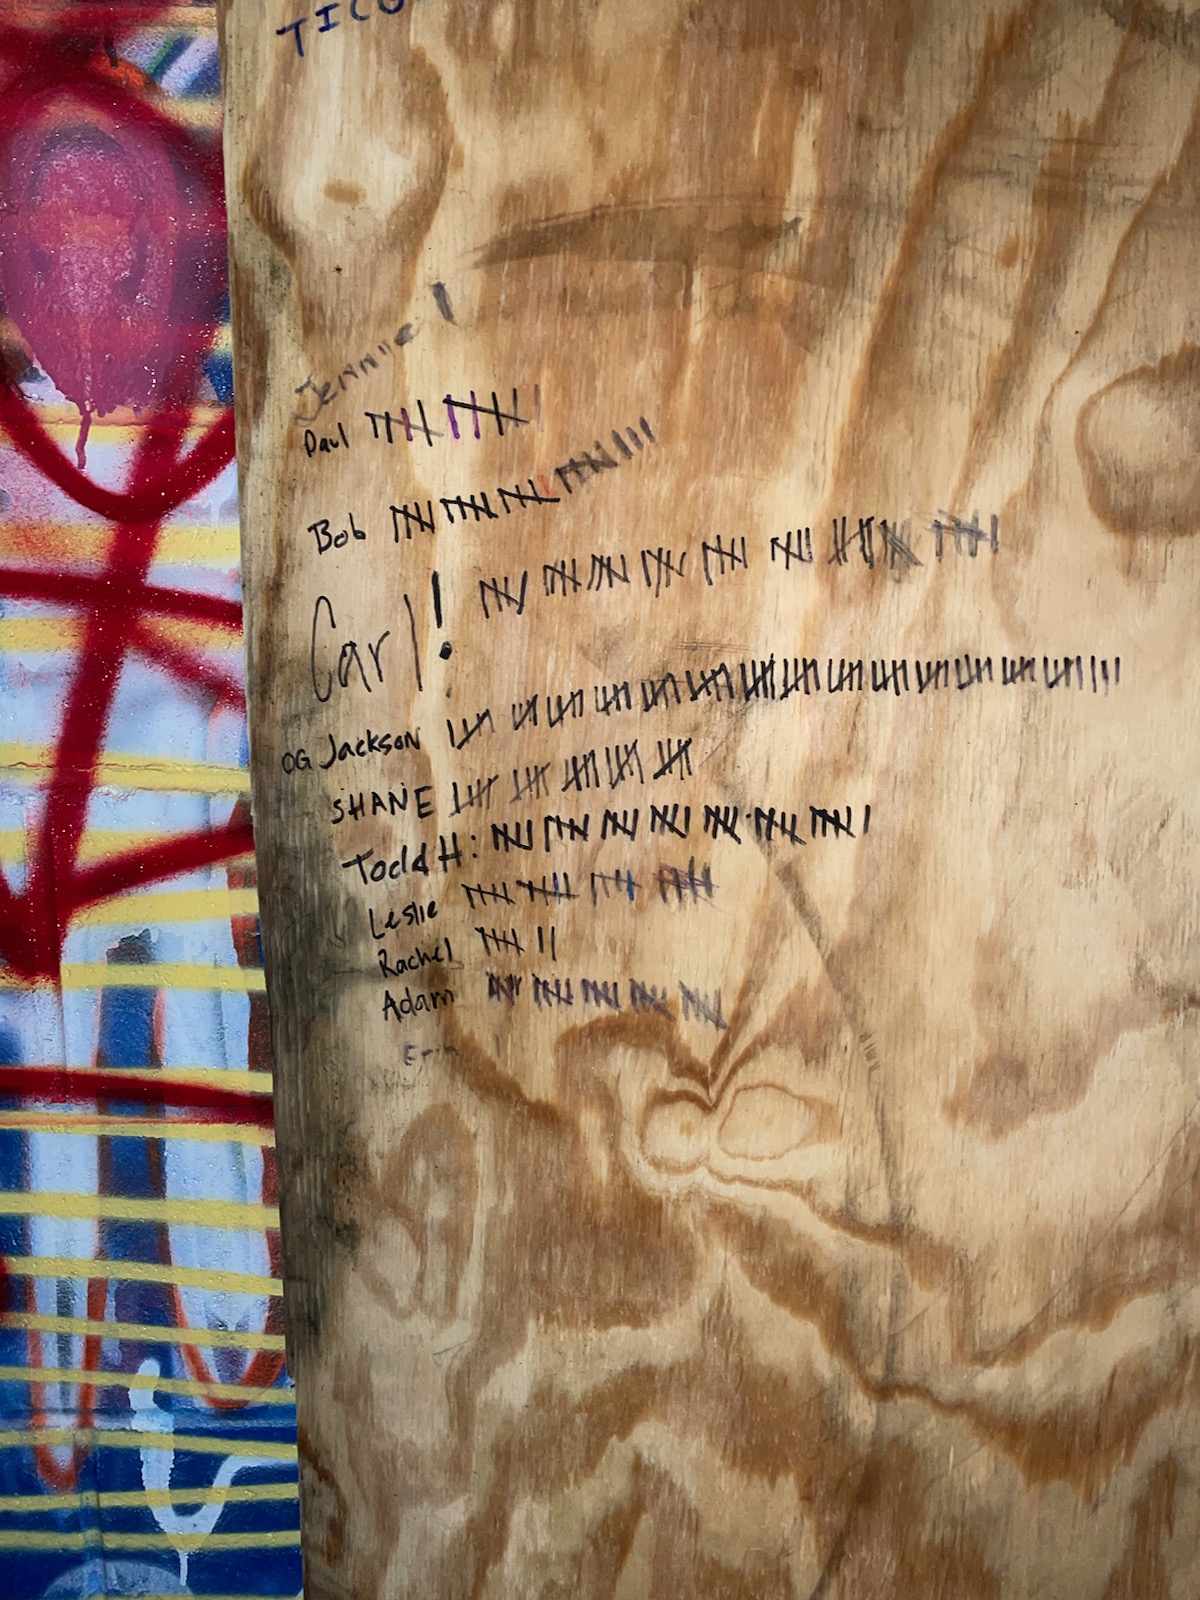 Jennie
Paul
Bob
Carl!
OG Jackson
SHANE
Todd H:
Leslie
Rachel
Adam
Erin